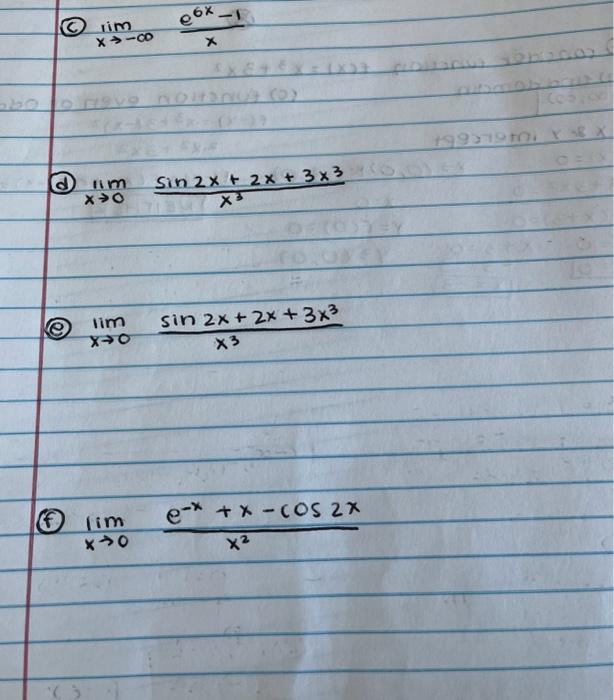 ⓒ lim x→-∞ (e^{6x} - 1)/x
ⓓ lim x→0 (sin 2x + 2x + 3x³)/x³
ⓔ lim x→0 (sin 2x + 2x + 3x³)/x³
ⓕ lim x→0 (e^{-x} + x - cos 2x)/x²